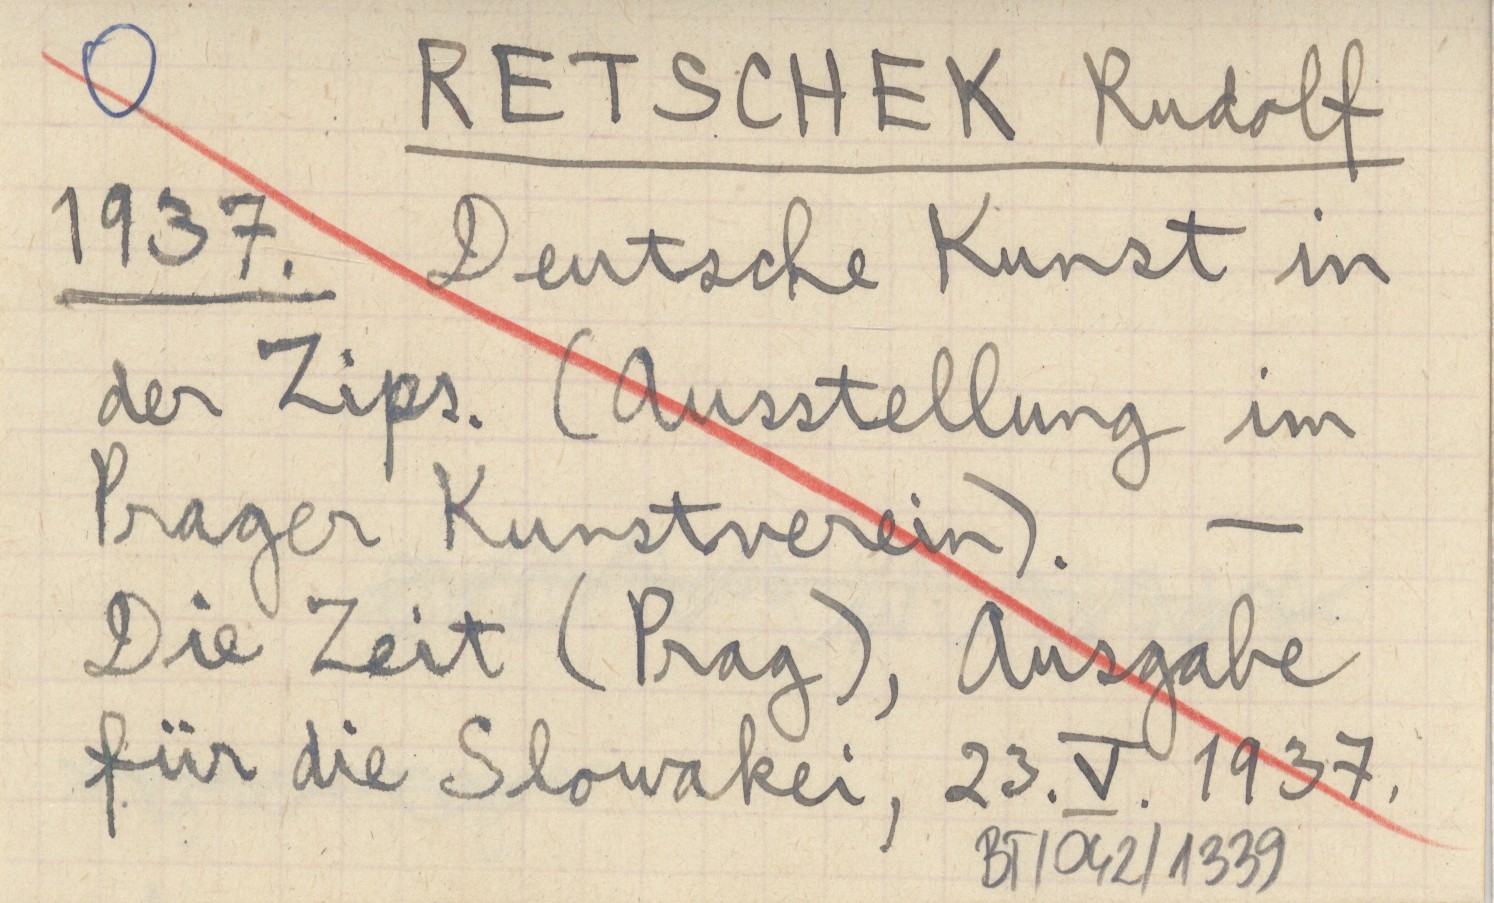 RETSCHEK Rudolf
1937. Deutsche Kunst in
der Zips. (Ausstellung im
Prager Kunstverein). —
Die Zeit (Prag), Ausgabe
für die Slowakei, 23. V. 1937.
BT/042/1339